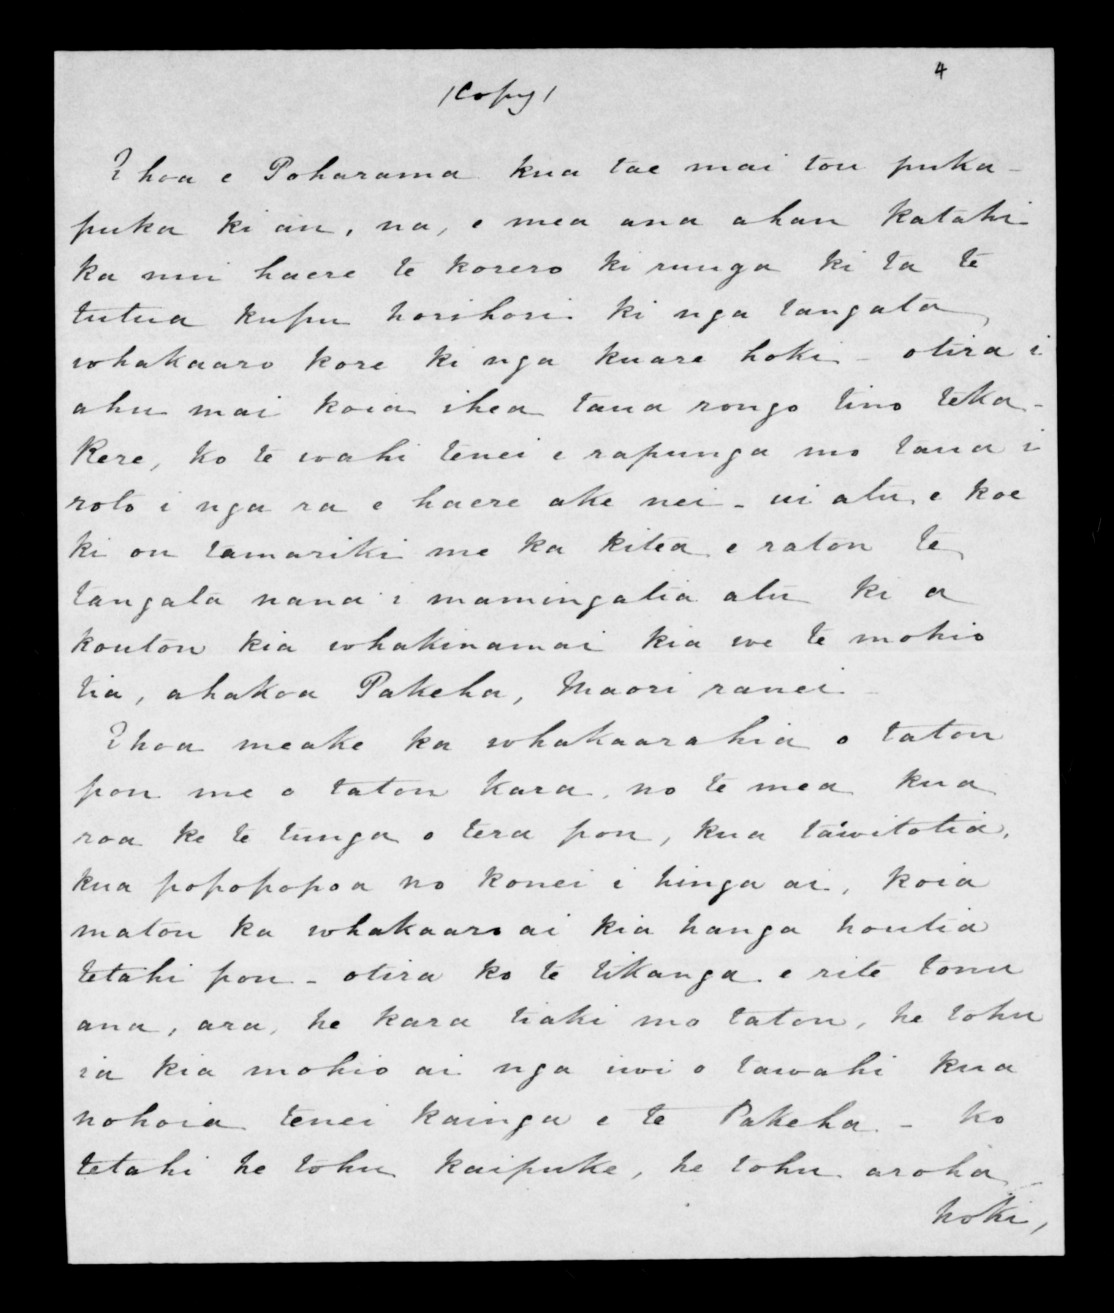 4
/Copy/
E hoa e Poharama kua tae mai tou puka-
puka ki au, na, e mea ana ahau katahi
ka nui haere te korero ki runga ki ta te
tutua kupu horihori ki nga tangata
whakaaro kore ki nga kuare hoki - otira i
ahu mai koia ihea taua rongo tino teka-
Rere, ko te wahi tenei e rapunga mo taua i
roto i nga ra e haere ake nei - ui atu e koe
ki ou tamariki me ka kitea e ratou te
tangata nana i mamingatia atu ki a
koutou kia whakinamai kia we te mohio
tia, ahakoa Pakeha, Maori ranei -
E hoa meake ka whakaarahia o tatou
pou me o tatou Kara, no te mea kua
roa ke te tunga o tera pou, kua tawitotia,
kua popopopoa no konei i hinga ai, koia
matou ka whakaaro ai kia hanga houtia
tetahi pou - otira ko te tikanga e rite tonu
ana, ara, he kara tiaki mo tatou, he tohu
ia kia mohio ai nga iwi o tawahi kua
nohoia tenei kainga e te Pakeha - ko
tetahi he tohu kaipuke, he tohu aroha
hoki,